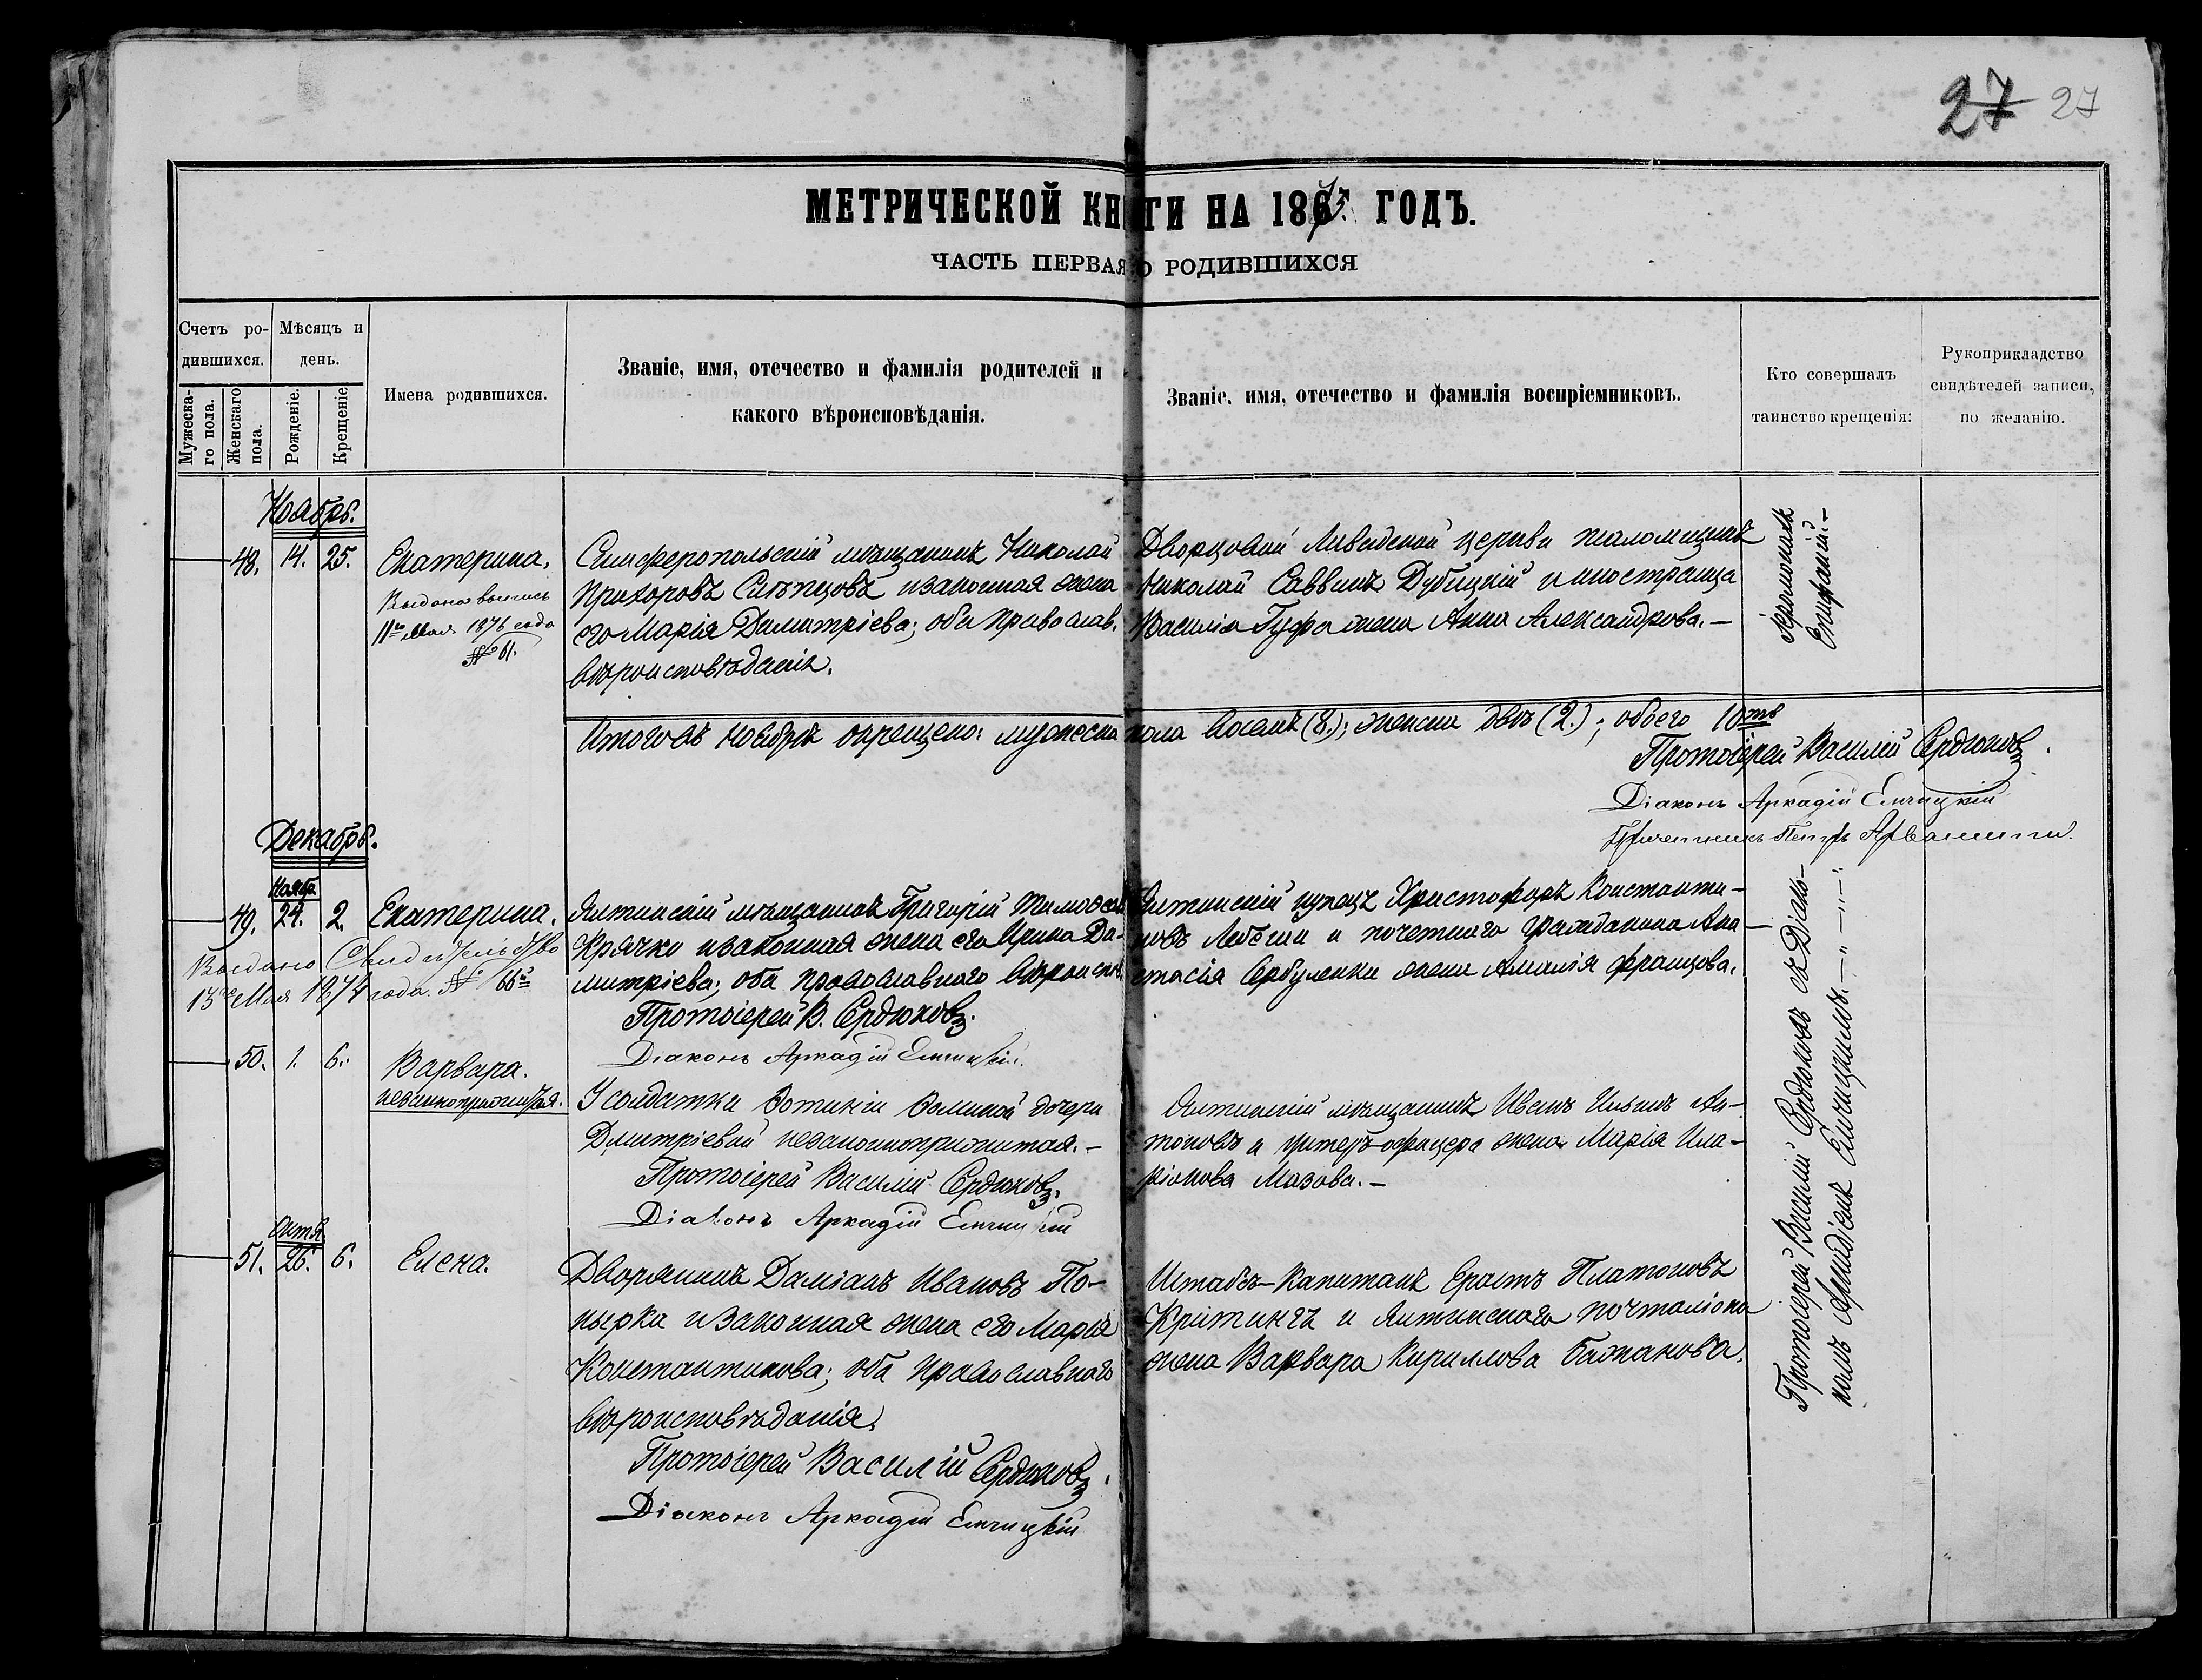 27 27
МЕТРИЧЕСКОЙ КНИГИ НА 1873 ГОДЪ.
ЧАСТЬ ПЕРВАЯ О РОДИВШИХСЯ
Счетъ ро-
дившихся.
Мѣсяцъ и
день.
Мужеска-
го пола.
Женскаго
пола.
Рожденіе.
Крещеніе
Имена родившихся.
Званіе, имя, отечество и фамилія родителей и
какого вѣроисповѣданія.
Званіе, имя, отечество и фамилія воспріемниковъ.
Кто совершалъ
таинство крещенія:
Рукоприкладство
свидѣтелей записи,
по желанію.
Ноябрь.
48. 14. 25. Екатерина.
Выдана выпись
11го Мая 1876 года
№ 61.
Симферопольскій мѣщанинъ Николай
Прохоровъ Слѣпцовъ и законная жена
его Марія Димитріева; оба православ.
вѣроисповѣданія.
Дворцовой Ливадской церкви псаломщикъ
Николай Саввинъ Дубицкій и иностранца
Василія жена Анна Александрова.–
Іеромонахъ
Епифаній.–
Итого въ ноябрѣ окрещено: мужеска пола восемь (8.); женска двѣ (2.); обоего 10ть
Протоіерей Василій Сердюковъ.
Діаконъ Аркадій
Причетникъ Петръ
Декабрь.
Нояб.
49. 24. 2. Екатерина.
Выдано Свидѣтельство
13го Мая 1874 года. № 66й
Ялтинскій мѣщанинъ Григорій
Крячко и законная жена его Ирина Ди-
митріева; оба православнаго вѣроиспов.
Протоіерей В. Сердюковъ.
Діаконъ Аркадій
Ялтинскій купецъ Христофоръ Константи-
новъ и почетнаго гражданина Ана-
стасія жена Амалія Францова.
50. 1. 6. Варвара.
незаконнорожденная.
У солдатки дочери
Дмитріевой незаконноприжитая.–
Протоіерей Василій Сердюковъ.
Діаконъ Аркадій
Ялтинскій мѣщанинъ Иванъ Ильинъ Ан-
тоновъ и унтеръ-офицера жена Марія Ила-
ріонова Мазова.–
Октя.
51. 26. 6. Елена.
Дворянинъ Даміанъ Ивановъ По-
пырка и законная жена его Марія
Константинова; оба православнаго
вѣроисповѣданія.
Протоіерей Василій Сердюковъ.
Діаконъ Аркадій
Штабсъ-Капитанъ Ерастъ Платоновъ
и Ялтинскаго почталіона
жена Варвара Кириллова Бажанова.
Протоіерей Василій Сердюковъ съ Діако-
номъ